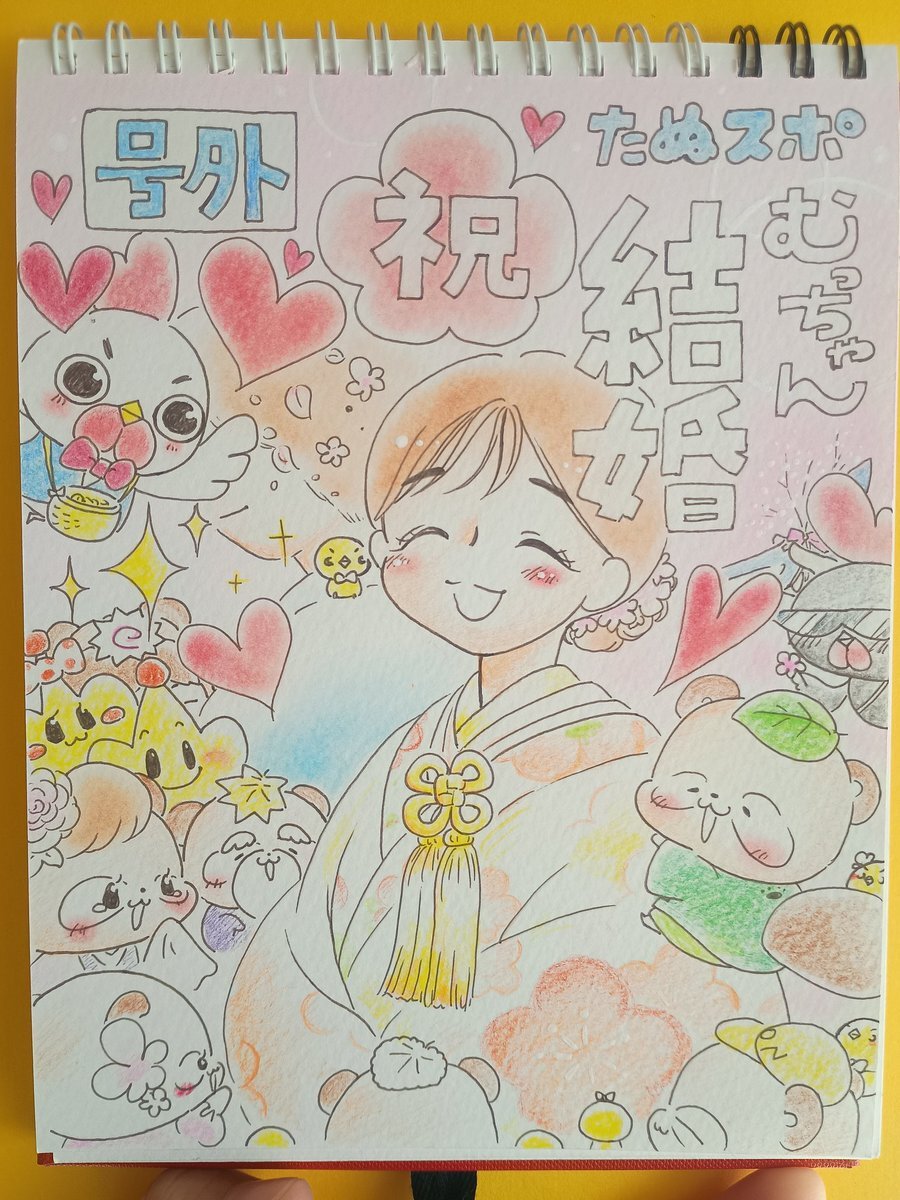 号外
祝
たぬスポ
むっちゃん
結婚